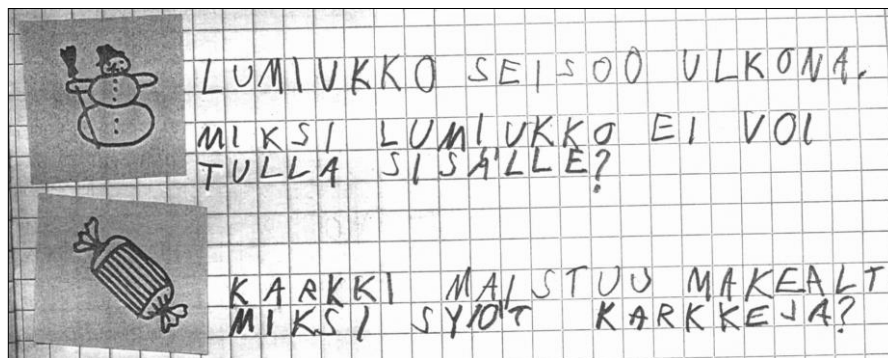 LUMIUKKO SEISOO ULKONA.
MIKSI LUMIUKKO EI VOI
TULLA SISÄLLE?
KARKKI MAISTUU MAKEALT
MIKSI SYÖT KARKKEJA?